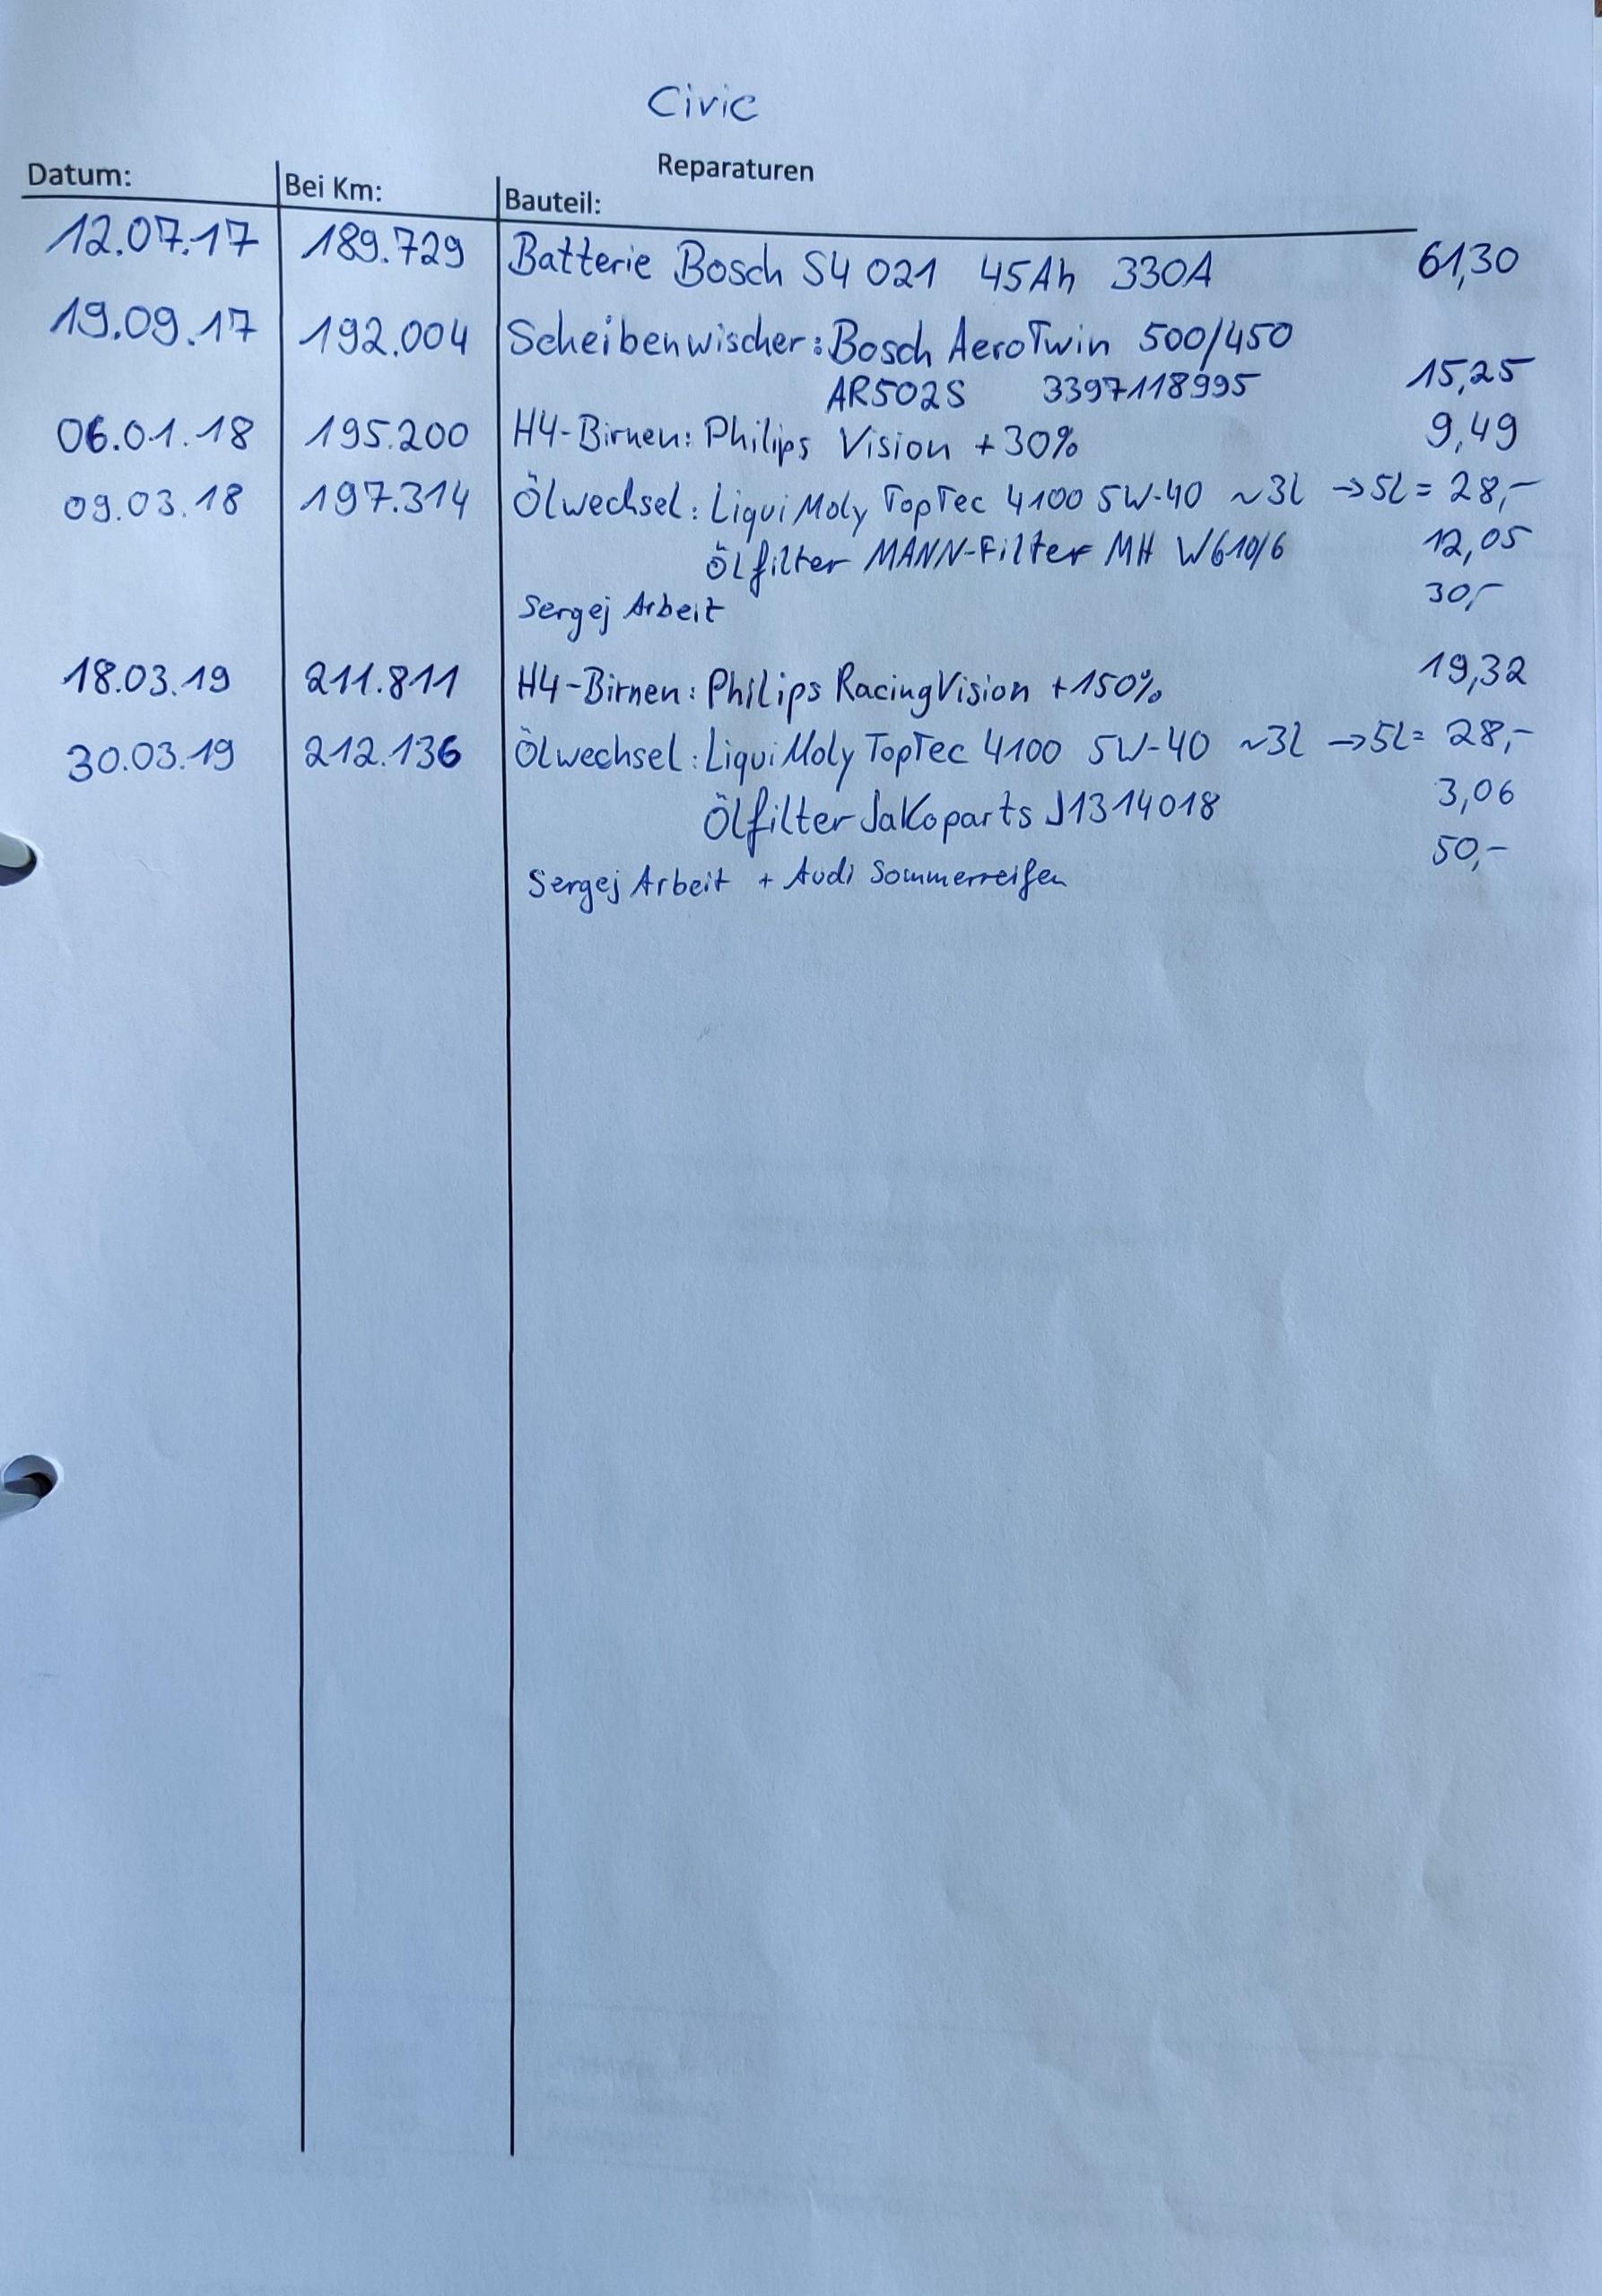 Civic
Reparaturen
Datum: Bei Km: Bauteil:
12.07.17 189.729 Batterie Bosch S4 021 45Ah 330A 61,30
19.09.17 192.004 Scheibenwischer: Bosch AeroTwin 500/450
AR502S 3397118995 15,25
06.01.18 195.200 H4-Birnen: Philips Vision +30% 9,49
09.03.18 197.314 Ölwechsel: Liqui Moly TopTec 4100 5W-40 ~3L →5L= 28,-
Ölfilter MANN-Filter MH W610/6 12,05
Sergej Arbeit 30,-
18.03.19 211.811 H4-Birnen: Philips RacingVision +150% 19,32
30.03.19 212.136 Ölwechsel: Liqui Moly TopTec 4100 5W-40 ~3L →5L= 28,-
Ölfilter JaKoparts J1314018 3,06
Sergej Arbeit + Audi Sommerreifen 50,-